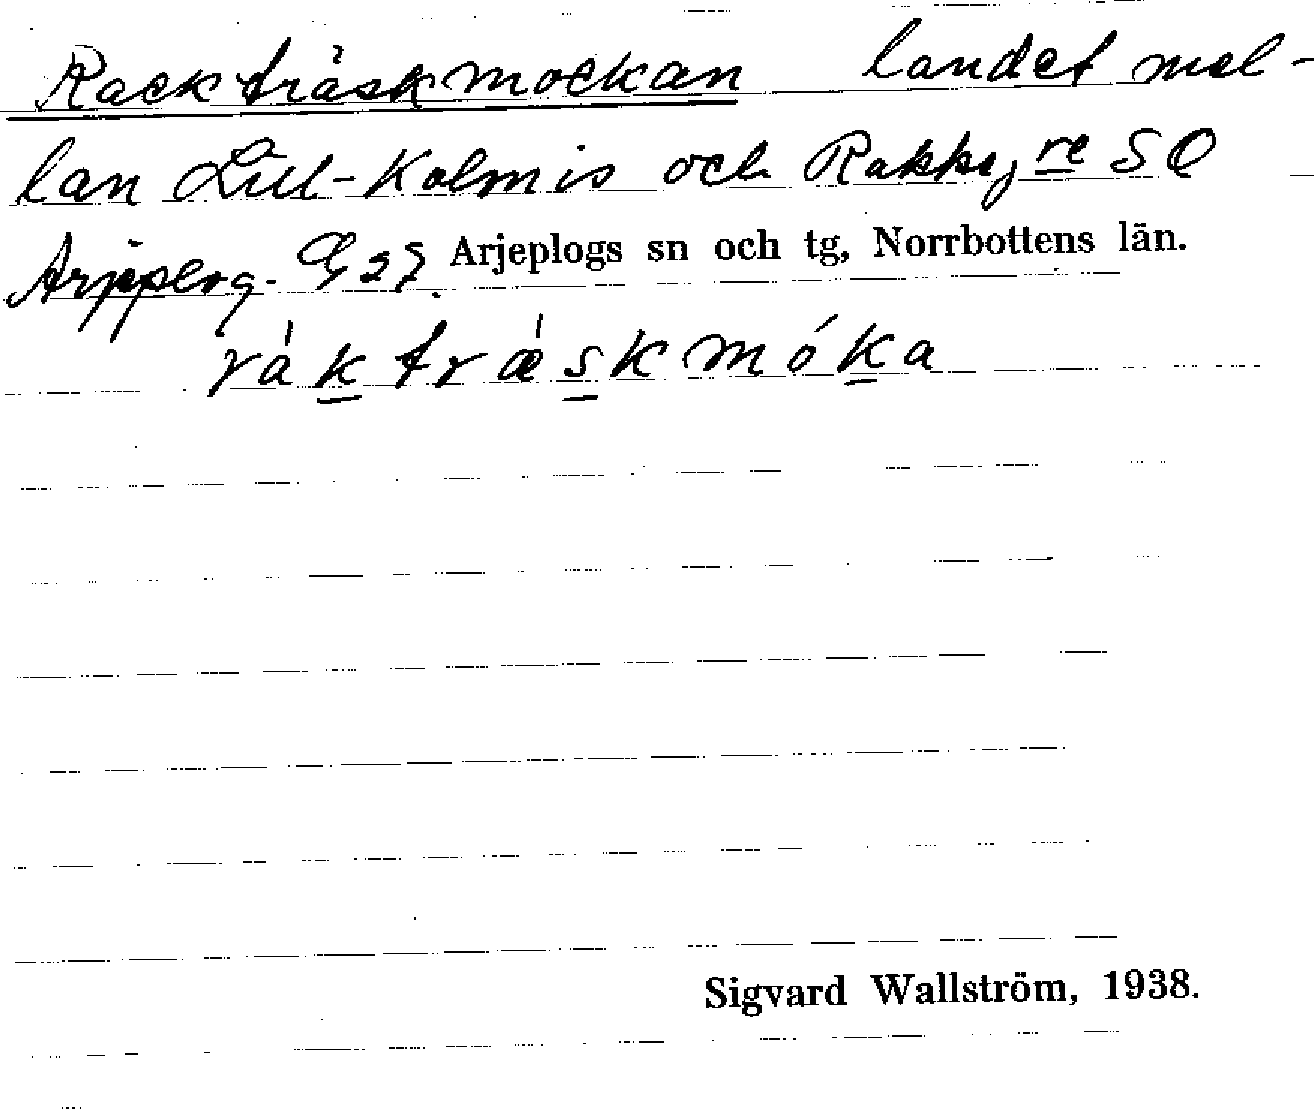 Rackträskmockan landet mel-
lan Lill-Kolmis och Rakksjre SO
Arjeplog. G 27. Arjeplogs sn och tg, Norrbottens län.
ráktrǽskmóka
Sigvard Wallström, 1938.